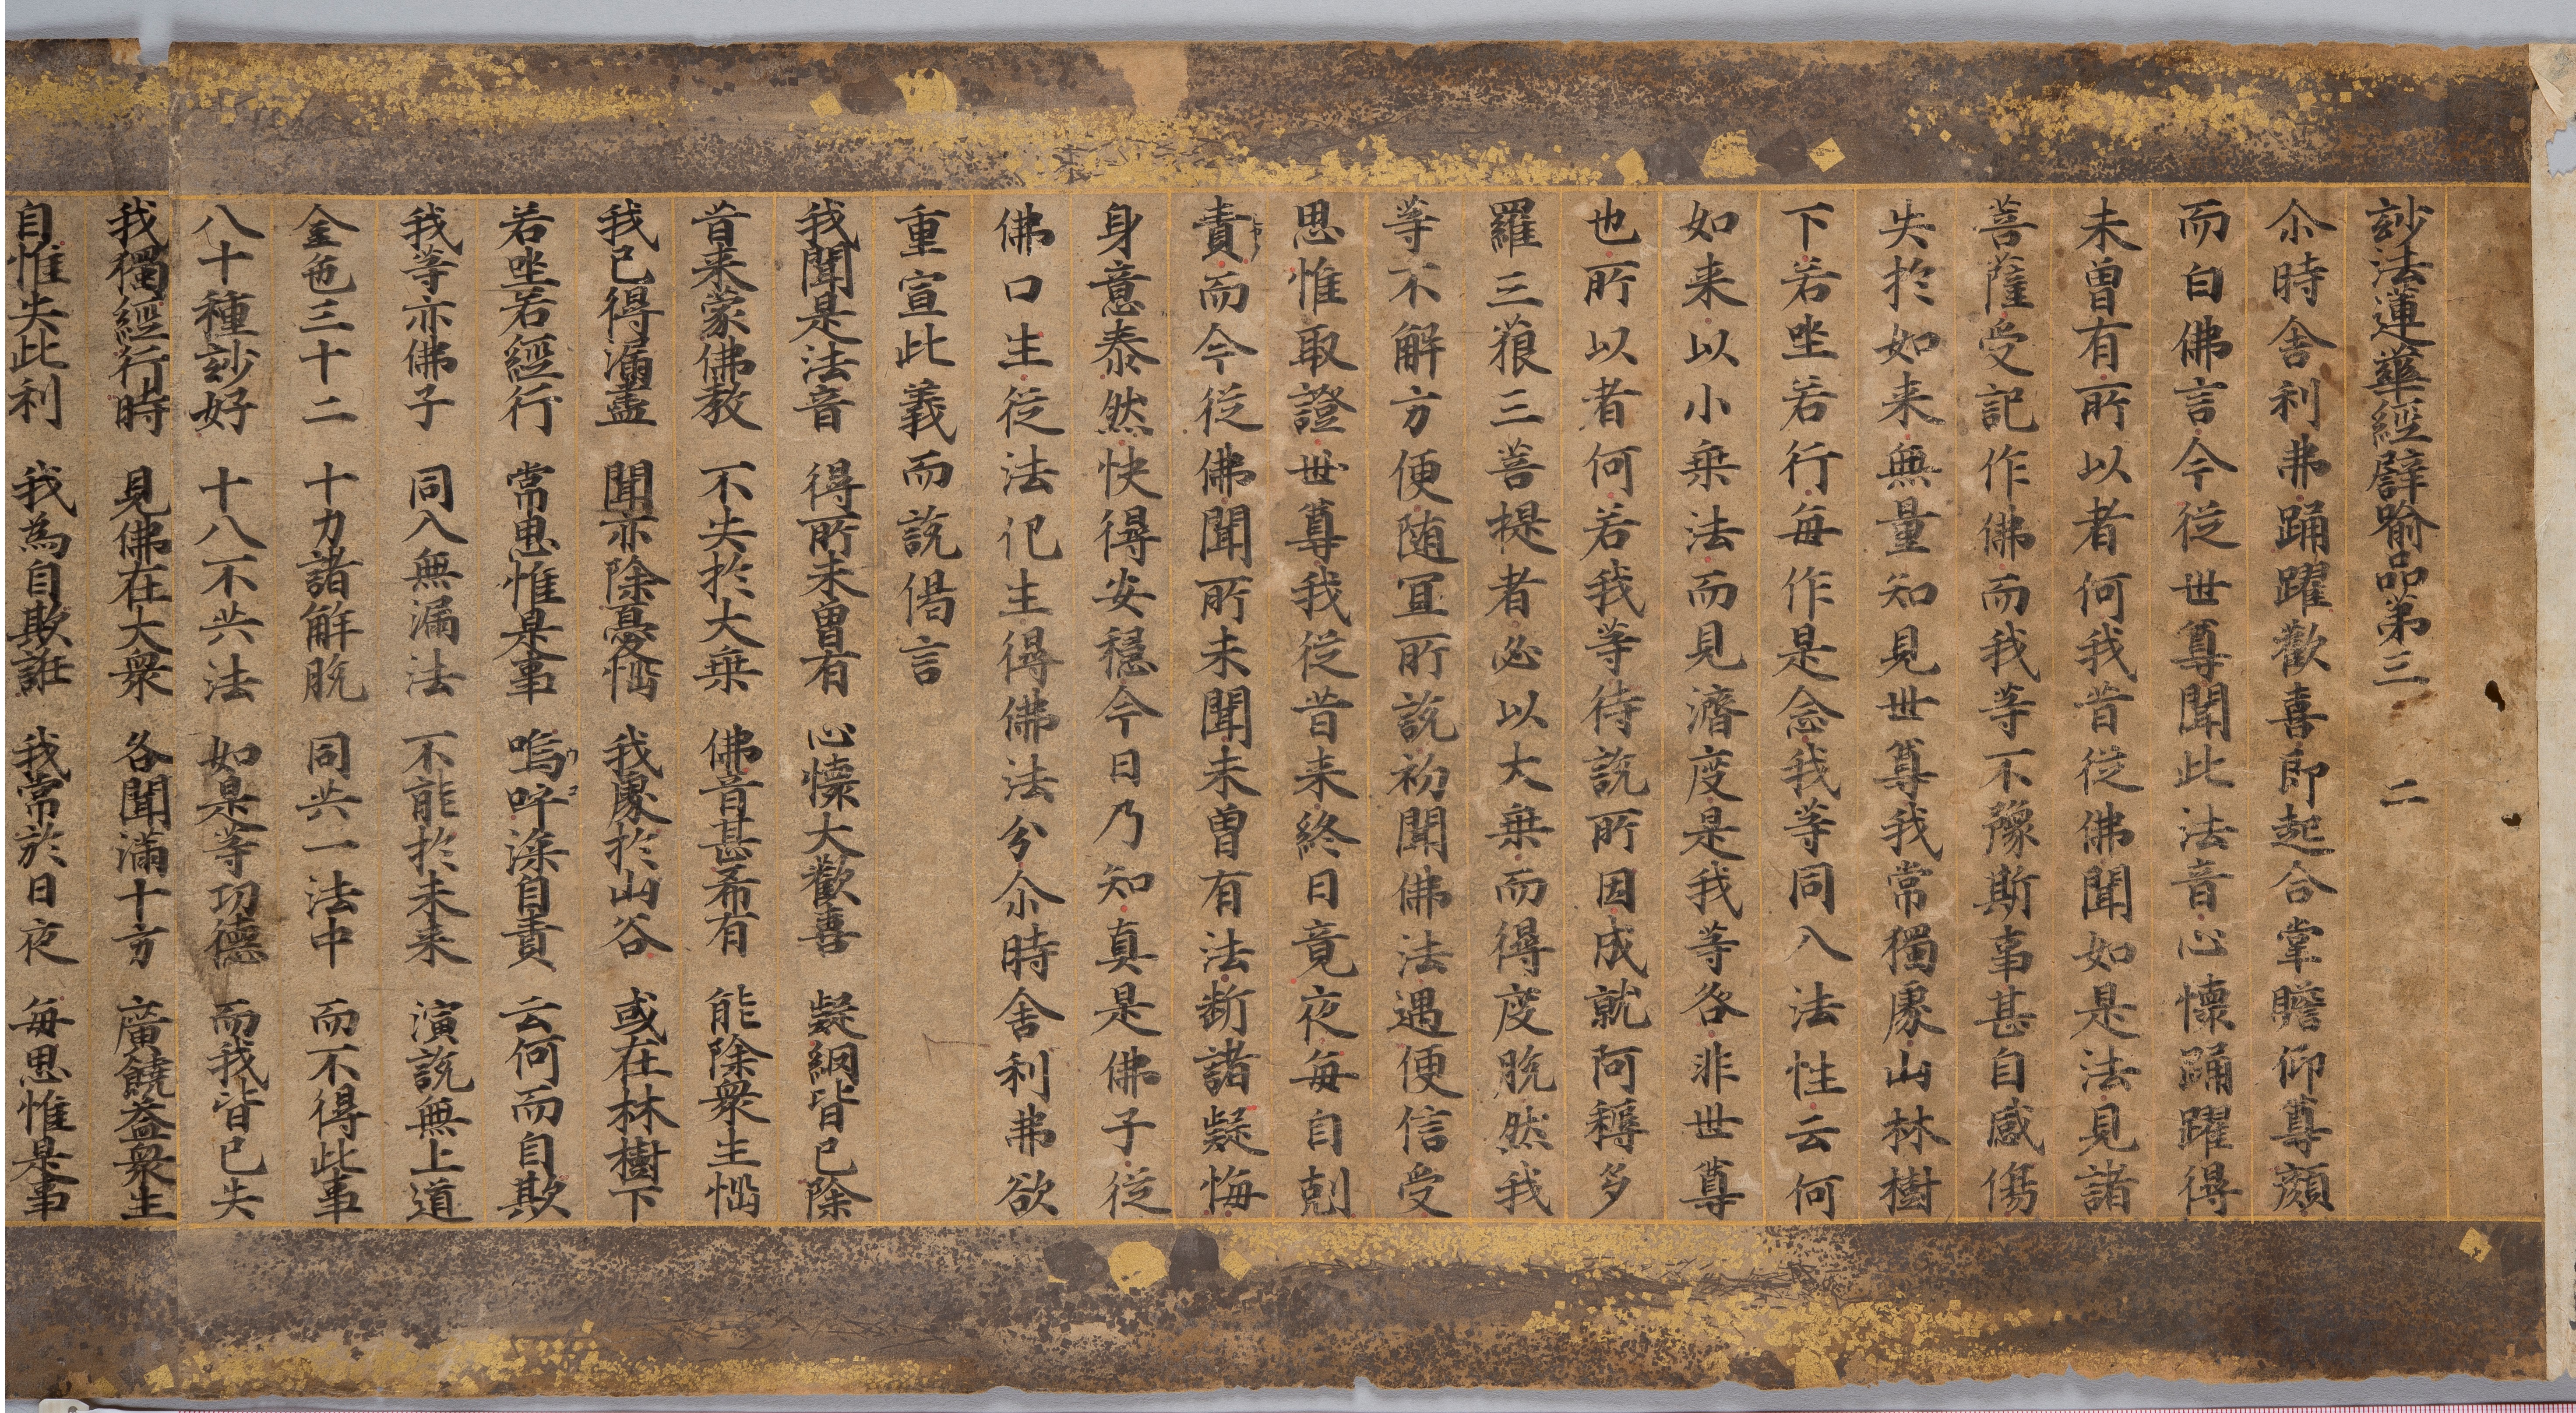 玅法蓮華經譬喻品第三　二
尒時舍利弗踊躍歡喜即起合掌瞻仰尊顏
而白佛言今從世尊聞此法音心懷踊躍得
未曾有所以者何我昔從佛聞如是法見諸
菩薩受記作佛而我等不豫斯事甚自感傷
失於如来無量知見世尊我常獨處山林樹
下若坐若行每作是念我等同入法性云何
如来以小乗法而見濟度是我等咎非世尊
也所以者何若我等待説所因成就阿耨多
羅三藐三菩提者必以大乗而得度脱然我
等不解方便随冝所説初聞佛法遇便信受
思惟取證世尊我從昔来終日竟夜每自剋
責而今從佛聞所未聞未曾有法断諸疑悔
身意泰然快得安穏今日乃知真是佛子從
佛口生從法化生得佛法分尒時舍利弗欲
重宣此義而説偈言
我聞是法音　得所未曾有　心懷大歡喜　疑網皆已除
昔来蒙佛教　不失於大乗　佛音甚希有　能除衆生惱
我已得漏盡　聞亦除憂惱　我處於山谷　或在林樹下
若坐若經行　常思惟是事　嗚呼深自責　云何而自欺
我等亦佛子　同入無漏法　不能於未来　演説無上道
金色三十二　十力諸解脱　同共一法中　而不得此事
八十種玅好　十八不共法　如是等功德　而我皆已失
我獨經行時　見佛在大衆　名聞滿十方　廣饒益衆生
自惟失此利　我為自欺誑　我常於日夜　每思惟是事